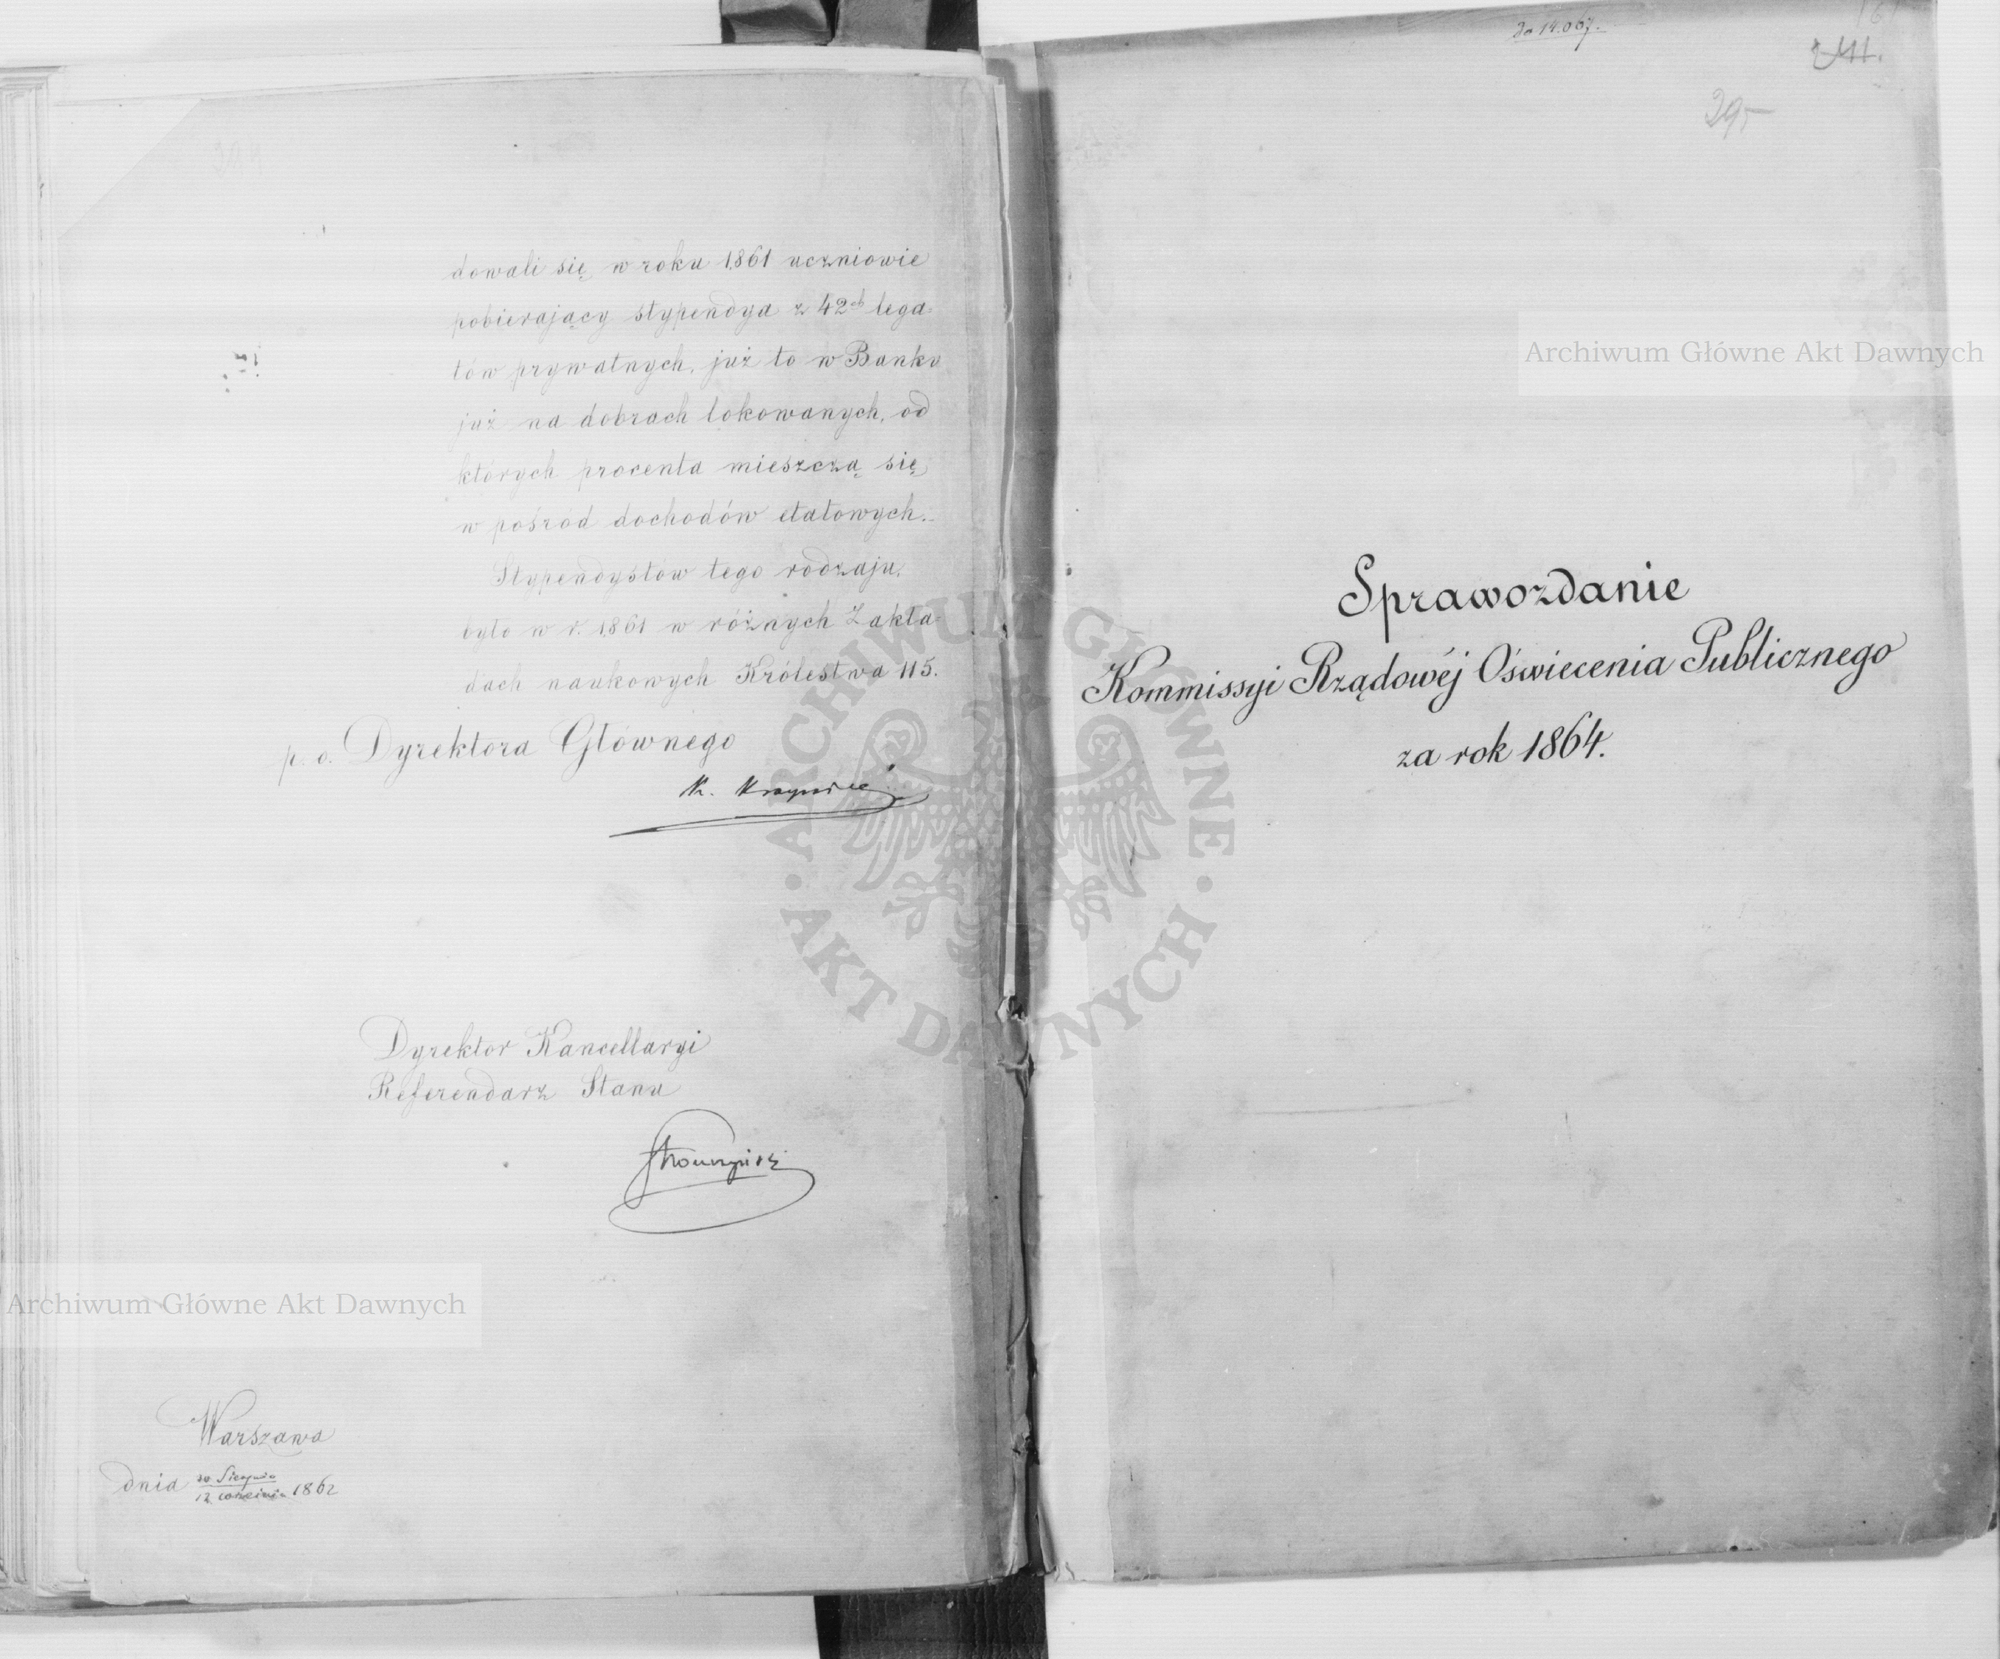 dowali się w roku 1861 uczniowie
pobierający stypendya z 42ch lega
tów prywatnych, już to w Banku
już na dobrach lokowanych, od
których procenta mieszczą się
w pośród dochodów etatowych.
Stypendystów tego rodzaju,
było w r. 1861 w różnych Zakła
dach naukowych Królestwa 115.
p. o. Dyrektora Głównego
Dyrektor Kancellaryi
Referendarz Stanu
Warszawa
dnia 1862
Archiwum Główne Akt Dawnych
do 14.067.
VII.
295
Archiwum Główne Akt Dawnych
Sprawozdanie
Kommissyi Rządowéj Oświecenia Publicznego
za rok 1864.
ARCHIWUM GŁÓWNE
AKT DAWNYCH